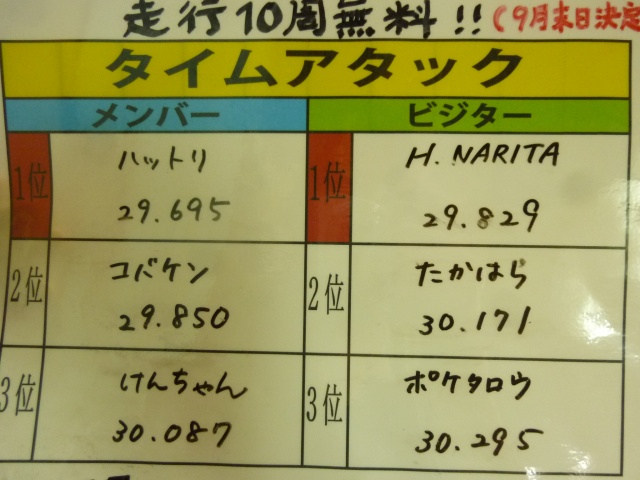 走行10周無料!!(9月末日決定
タイムアタック
メンバー ビジター
1位 ハットリ 29.695 1位 H. NARITA 29.829
2位 コバケン 29.850 2位 たかはら 30.171
3位 けんちゃん 30.087 3位 ポケタロウ 30.295